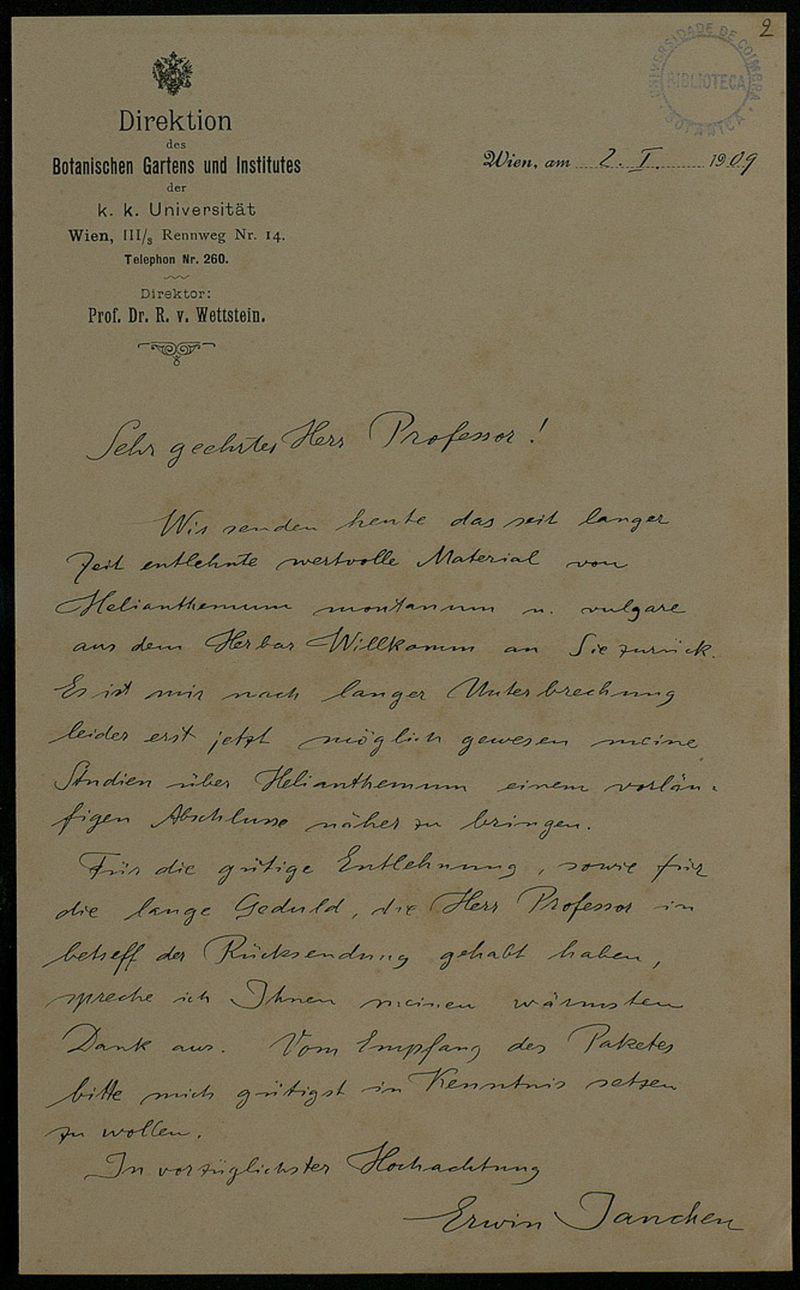 2
UNIVERSIDADE DE COIMBRA
BIBLIOTECA
BOTANICA
Direktion
des
Botanischen Gartens und Institutes
der
k. k. Universität
Wien, III/3 Rennweg Nr. 14.
Telephon Nr. 260.
Direktor:
Prof. Dr. R. v. Wettstein.
Wien, am 2. I. 1909
Sehr geehrter Herr Professor!
Wir senden heute das seit langer
Zeit entlehnte wertvolle Material von
Helianthemum montanum u. vulgare
aus dem Herbar Willkomm an Sie zurück.
Es ist mir nach langer Unterbrechung
leider erst jetzt möglich gewesen meine
Studien über Helianthemum einem vorläu-
figen Abschlusse näher zu bringen.
Für die gütige Entlehnung, sowie für
die lange Geduld, die Herr Professor in
betreff der Rücksendung gehabt haben,
spreche ich Ihnen meinen wärmsten
Dank aus. Vom Empfang des Paketes
bitte mich gütigst in Kenntnis setzen
zu wollen.
In vorzüglichster Hochachtung
Erwin Janchen